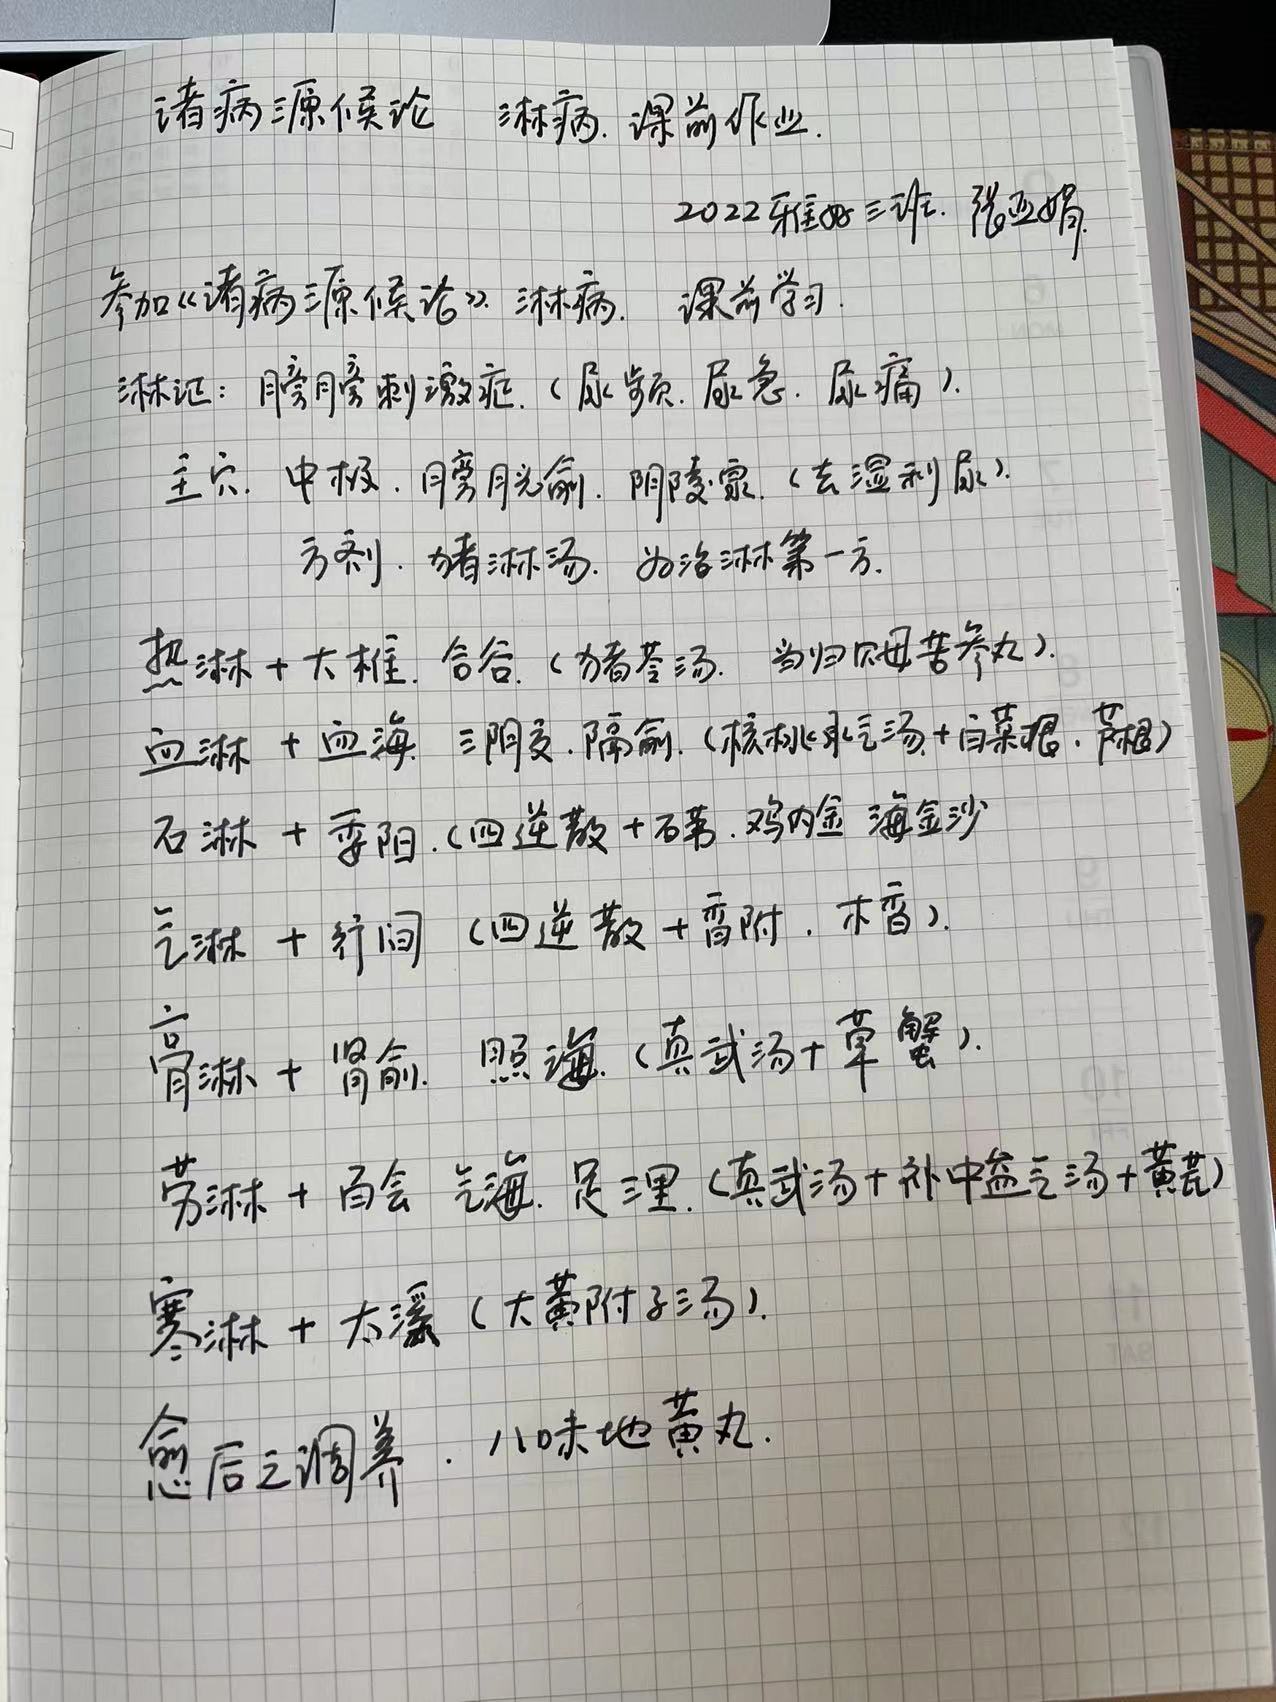 诸病源候论 淋病. 课前作业.
2022雅好三班. 张亚娟.
参加《诸病源候论》. 淋病. 课前学习.
淋证: 膀膀刺激症. (尿频. 尿急. 尿痛).
主穴. 中极. 膀胱俞. 阴陵泉. (去湿利尿).
方剂. 猪淋汤. 为治淋第一方.
热淋 + 大椎. 合谷. (猪苓汤. 当归贝母苦参丸).
血淋 + 血海. 三阴交. 隔俞. (核桃承气汤+白菜根. 芦根)
石淋 + 委阳. (四逆散+石苇. 鸡内金 海金沙
气淋 + 行间 (四逆散+香附. 木香).
膏淋 + 肾俞. 照海. (真武汤+草蟹).
劳淋 + 百会 气海. 足三里. (真武汤+补中益气汤+黄芪)
寒淋 + 太溪 (大黄附子汤).
愈后之调养. 八味地黄丸.